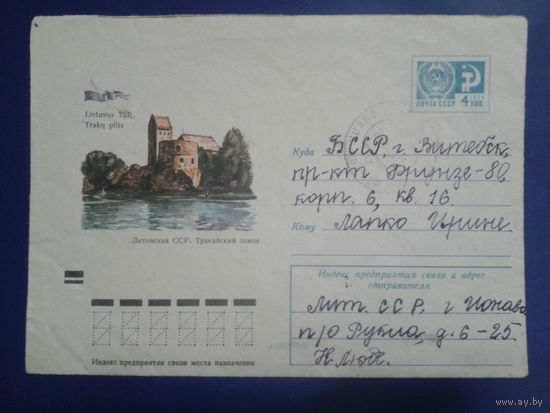 Lietuvos TSR.
Trakų pilis
Литовская ССР. Тракайский замок
ПОЧТА СССР 4 КОП.
Куда БССР, г Витебск,
пр-кт Фрунзе-80,
корп. 6, кв. 16.
Кому Лапко Ирине.
Индекс предприятия связи и адрес
отправителя
Лит. ССР, г Ионава
п/о Рукла, д. 6-25
Индекс предприятия связи места назначения
www.ay.by